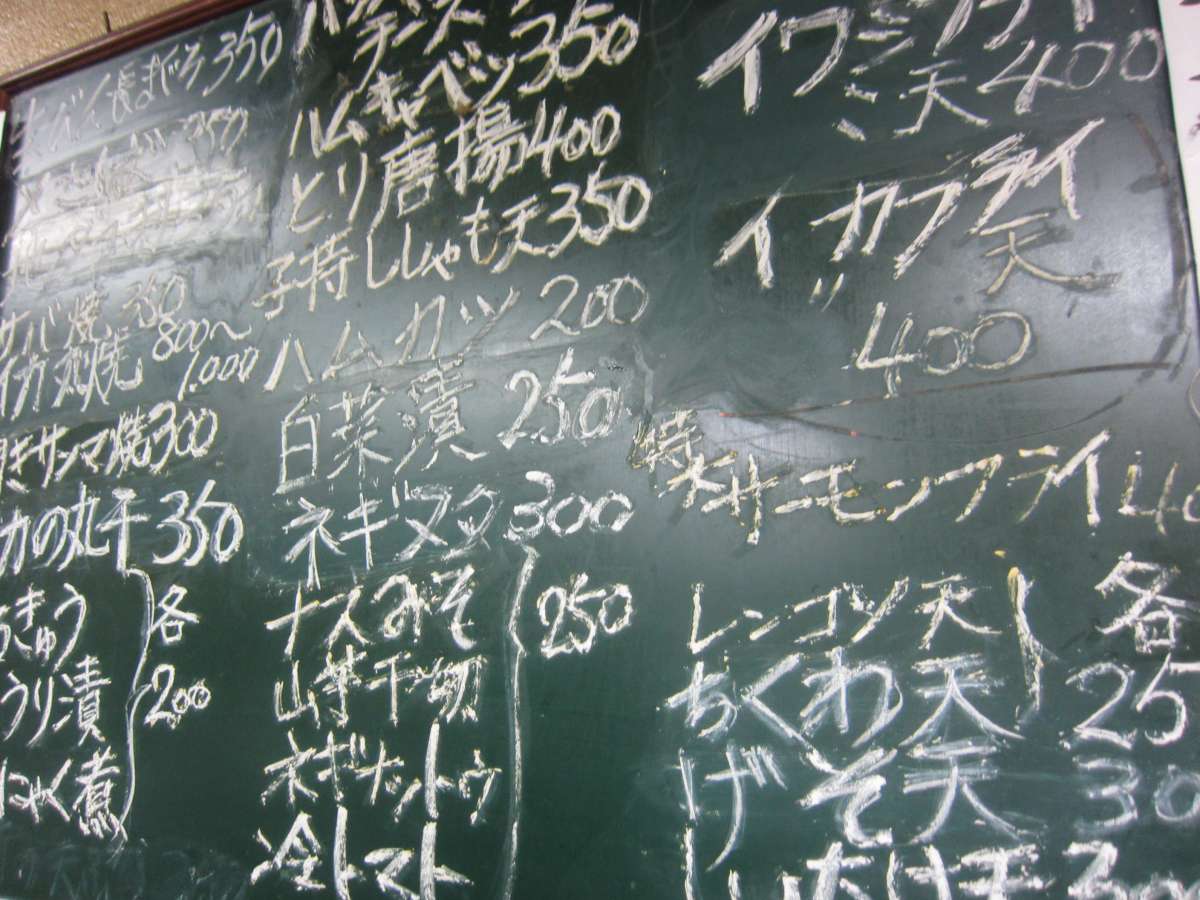 350
350
サバ焼 350
イカ丸焼 800〜
1.000
サンマ焼 300
カの丸干 350
きゅう
うり漬
にゃく煮
各
200
チーズ 350
ハムキャベツ
とり唐揚 400
子持ししゃも天 350
ハムカツ 200
白菜漬 250
ネギヌタ 300
ナスみそ
山芋千切
ネギナットウ
冷トマト
250
イワシフライ
〃天 400
イカフライ
〃天
400
特大サーモンフライ 40
レンコン天
ちくわ天
各
25
げそ天 30
しいたけ天 300